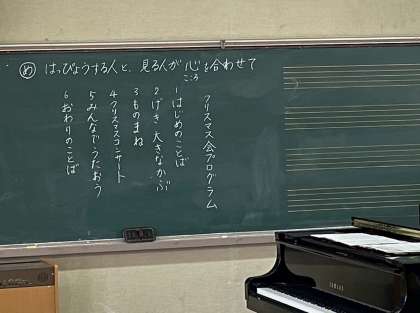 め はっぴょうする人と、見る人が心を合わせて
こころ
クリスマス会プログラム
1 はじめのことば
2 げき 大きなかぶ
3 ものまね
4 クリスマスコンサート
5 みんなでうたおう
6 おわりのことば
YAMAHA